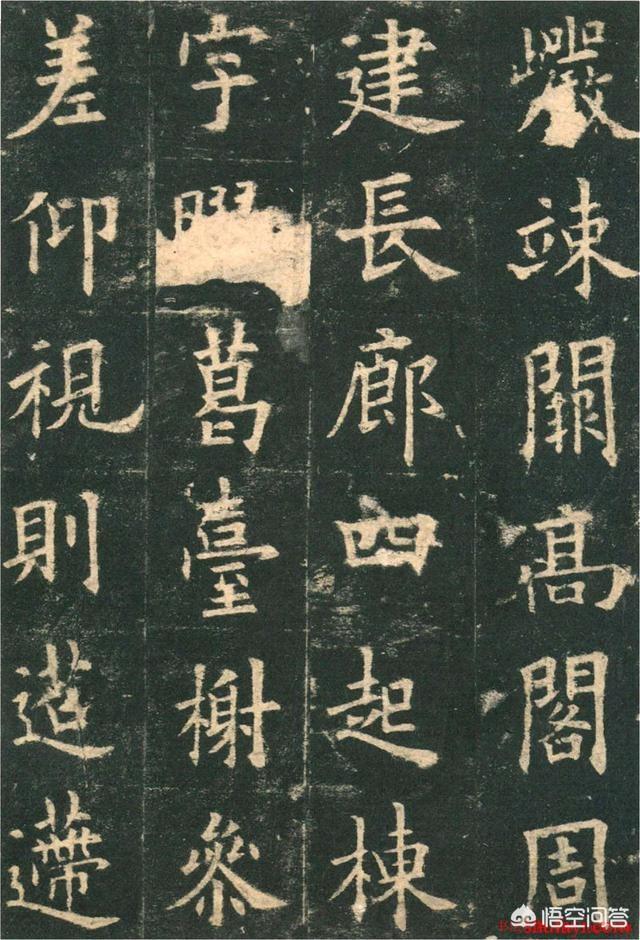 巖竦闕高閣周
建長廊四起棟
字膠葛臺榭參
差仰視則迢遰
悟空问答